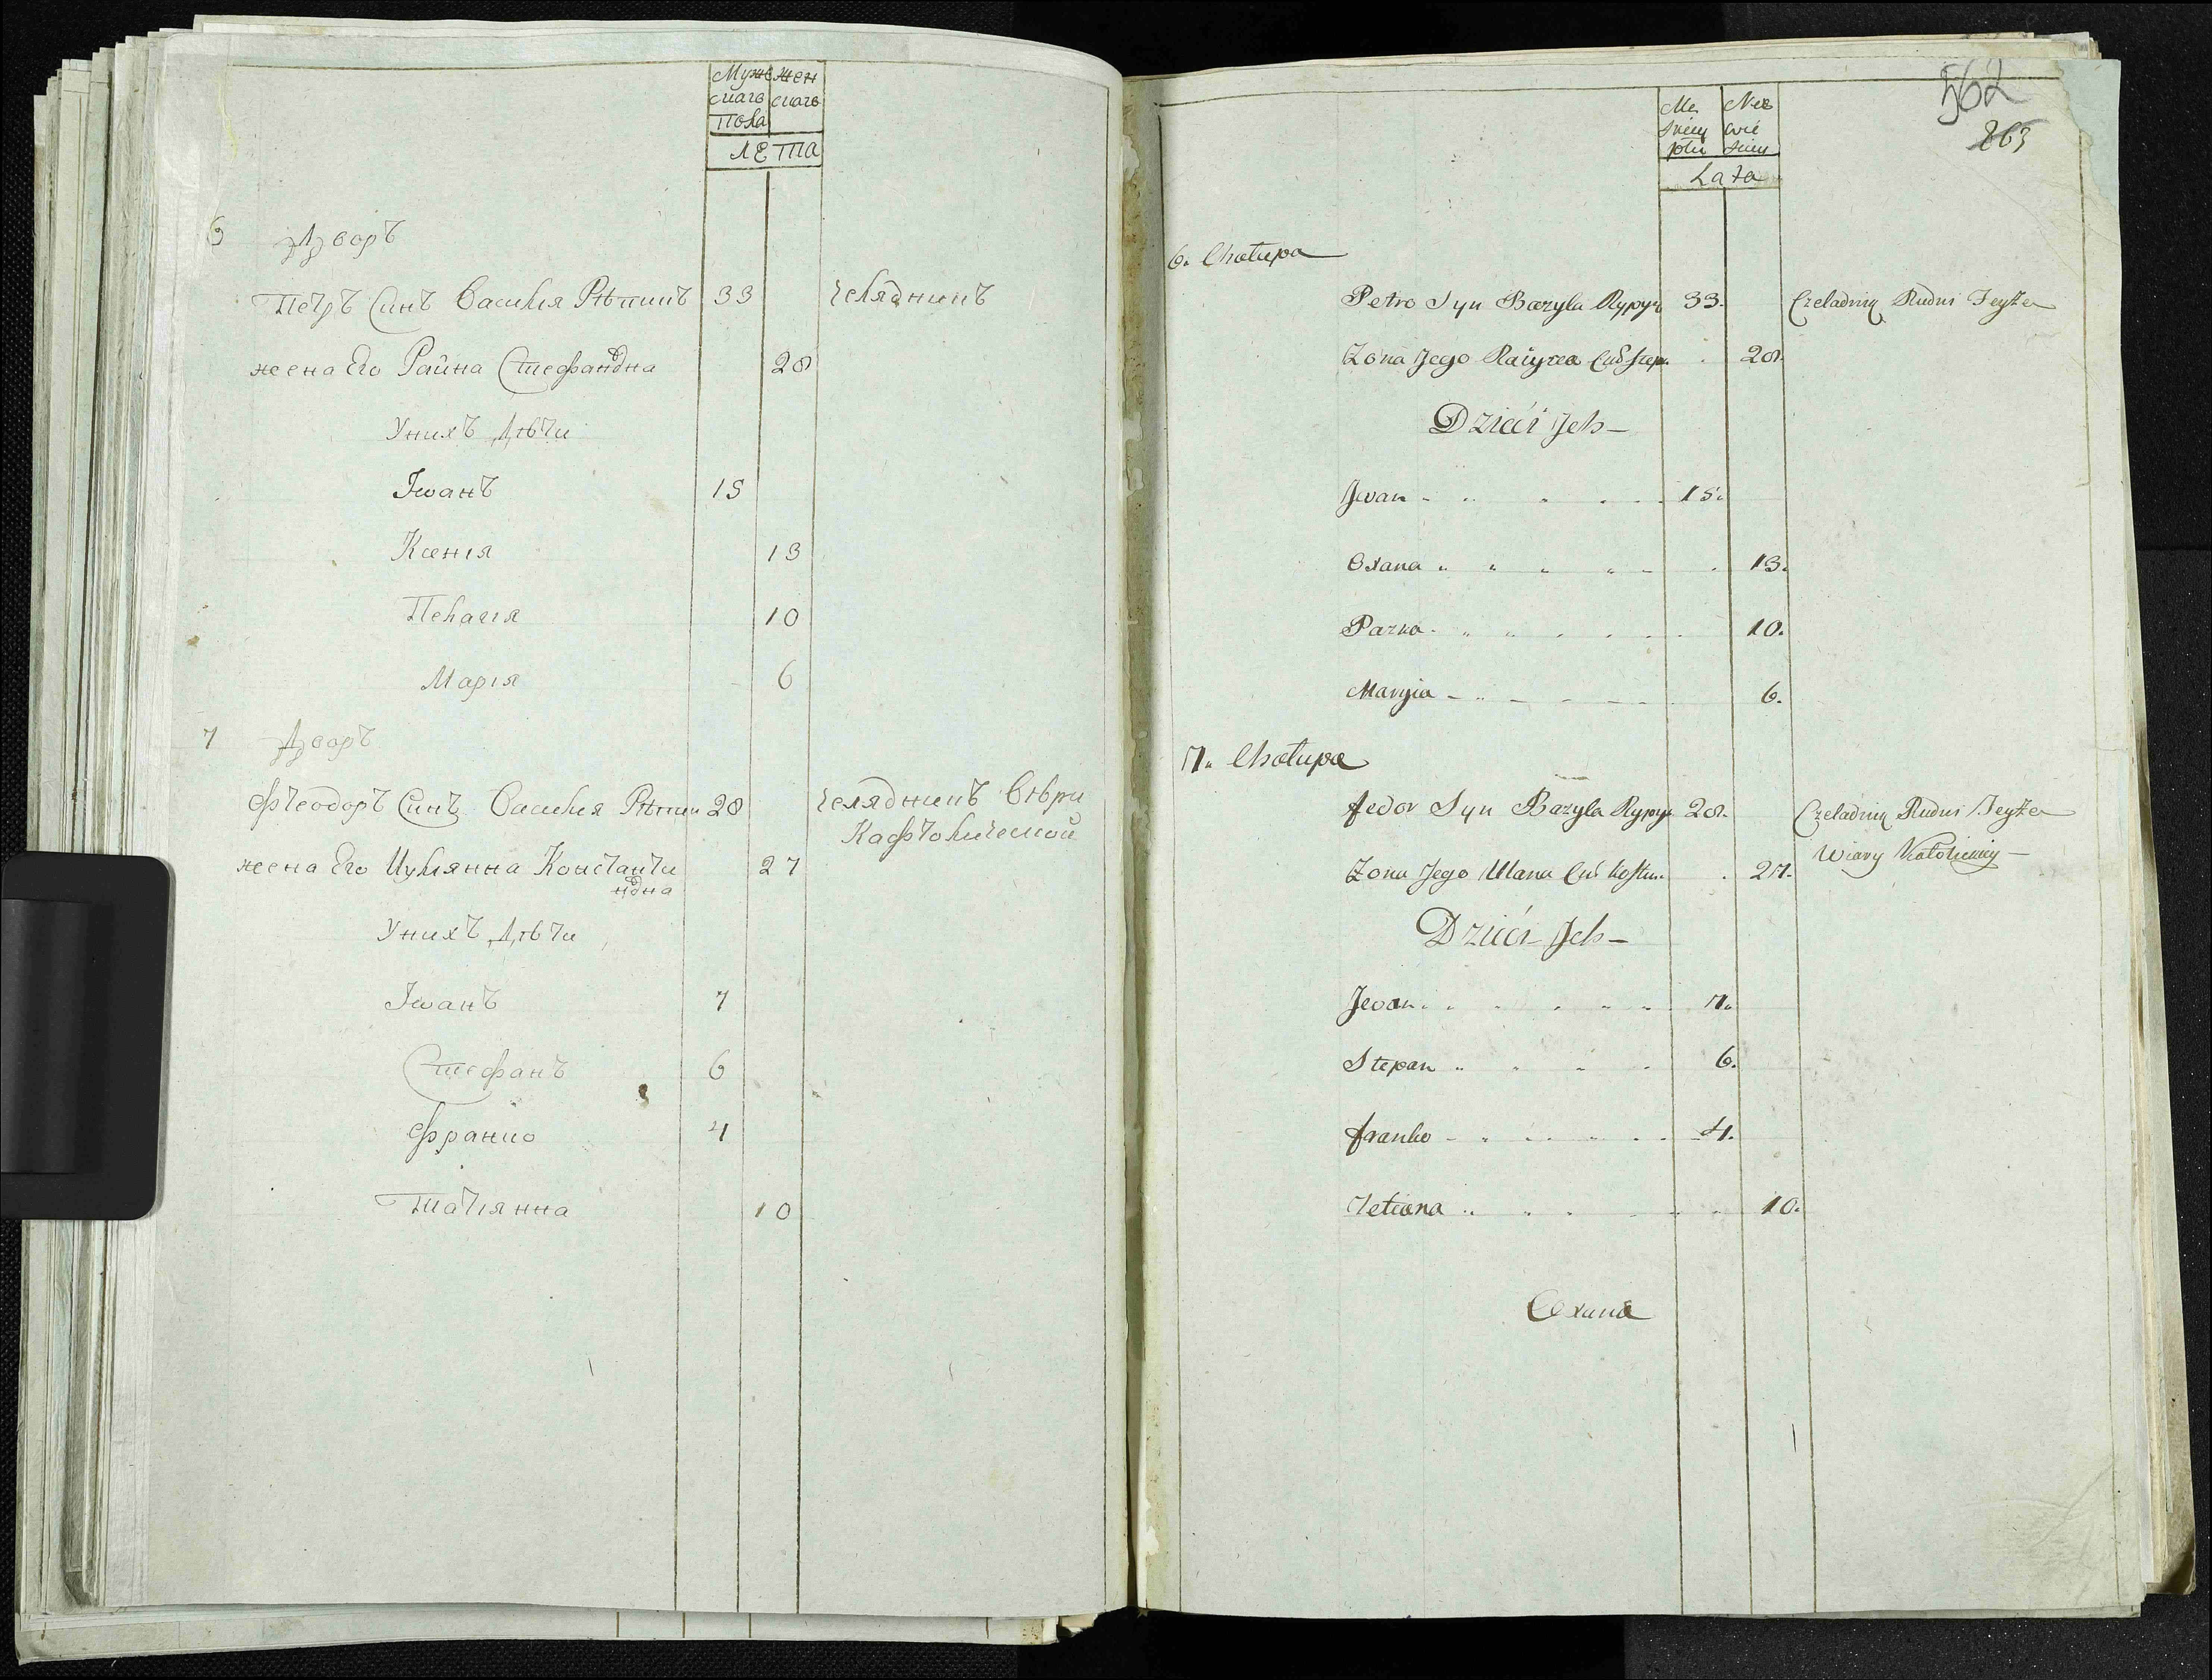 Мужe жен
скаго скаго
Пола
ЛЕТА
6 Дворъ
Петръ Синъ Василия Рѣпичъ 33 челядникъ
жена Его Раина Стефандна 28
Унихъ Дѣти
Іванъ 15
Ксенія 13
Пелагія 10
Марія 6
7 Дворъ
Фѣодоръ Синъ Василия 28 челядникъ Вѣри
Кафтолической
жена Его Иулянна Константи 27
ндна
Унихъ Дѣти
Іванъ 7
Стефанъ 6
Франко 4
Татіянна 10
562
863
Mę Niе
skiey wie
płci skiey
Lata
6. Chałupa
Petro Syn Bazyla 33. Czeladnik Rudni Teyże
Zona Jego Raiyna Cór. Step. 28.
Dzieci Jch
Jwan 15.
Oxana 13.
Pazka 10.
Maryia 6.
7. Chałupa
fedor Syn Bazyla 28. Czeladnik Rudni Teyże
Wiary Katolickiey
Zona Jego Ulana Cór. 27.
Dzieci Jch
Jwan 7.
Stepan 6.
franko 4.
Tetiana 10.
Oxana